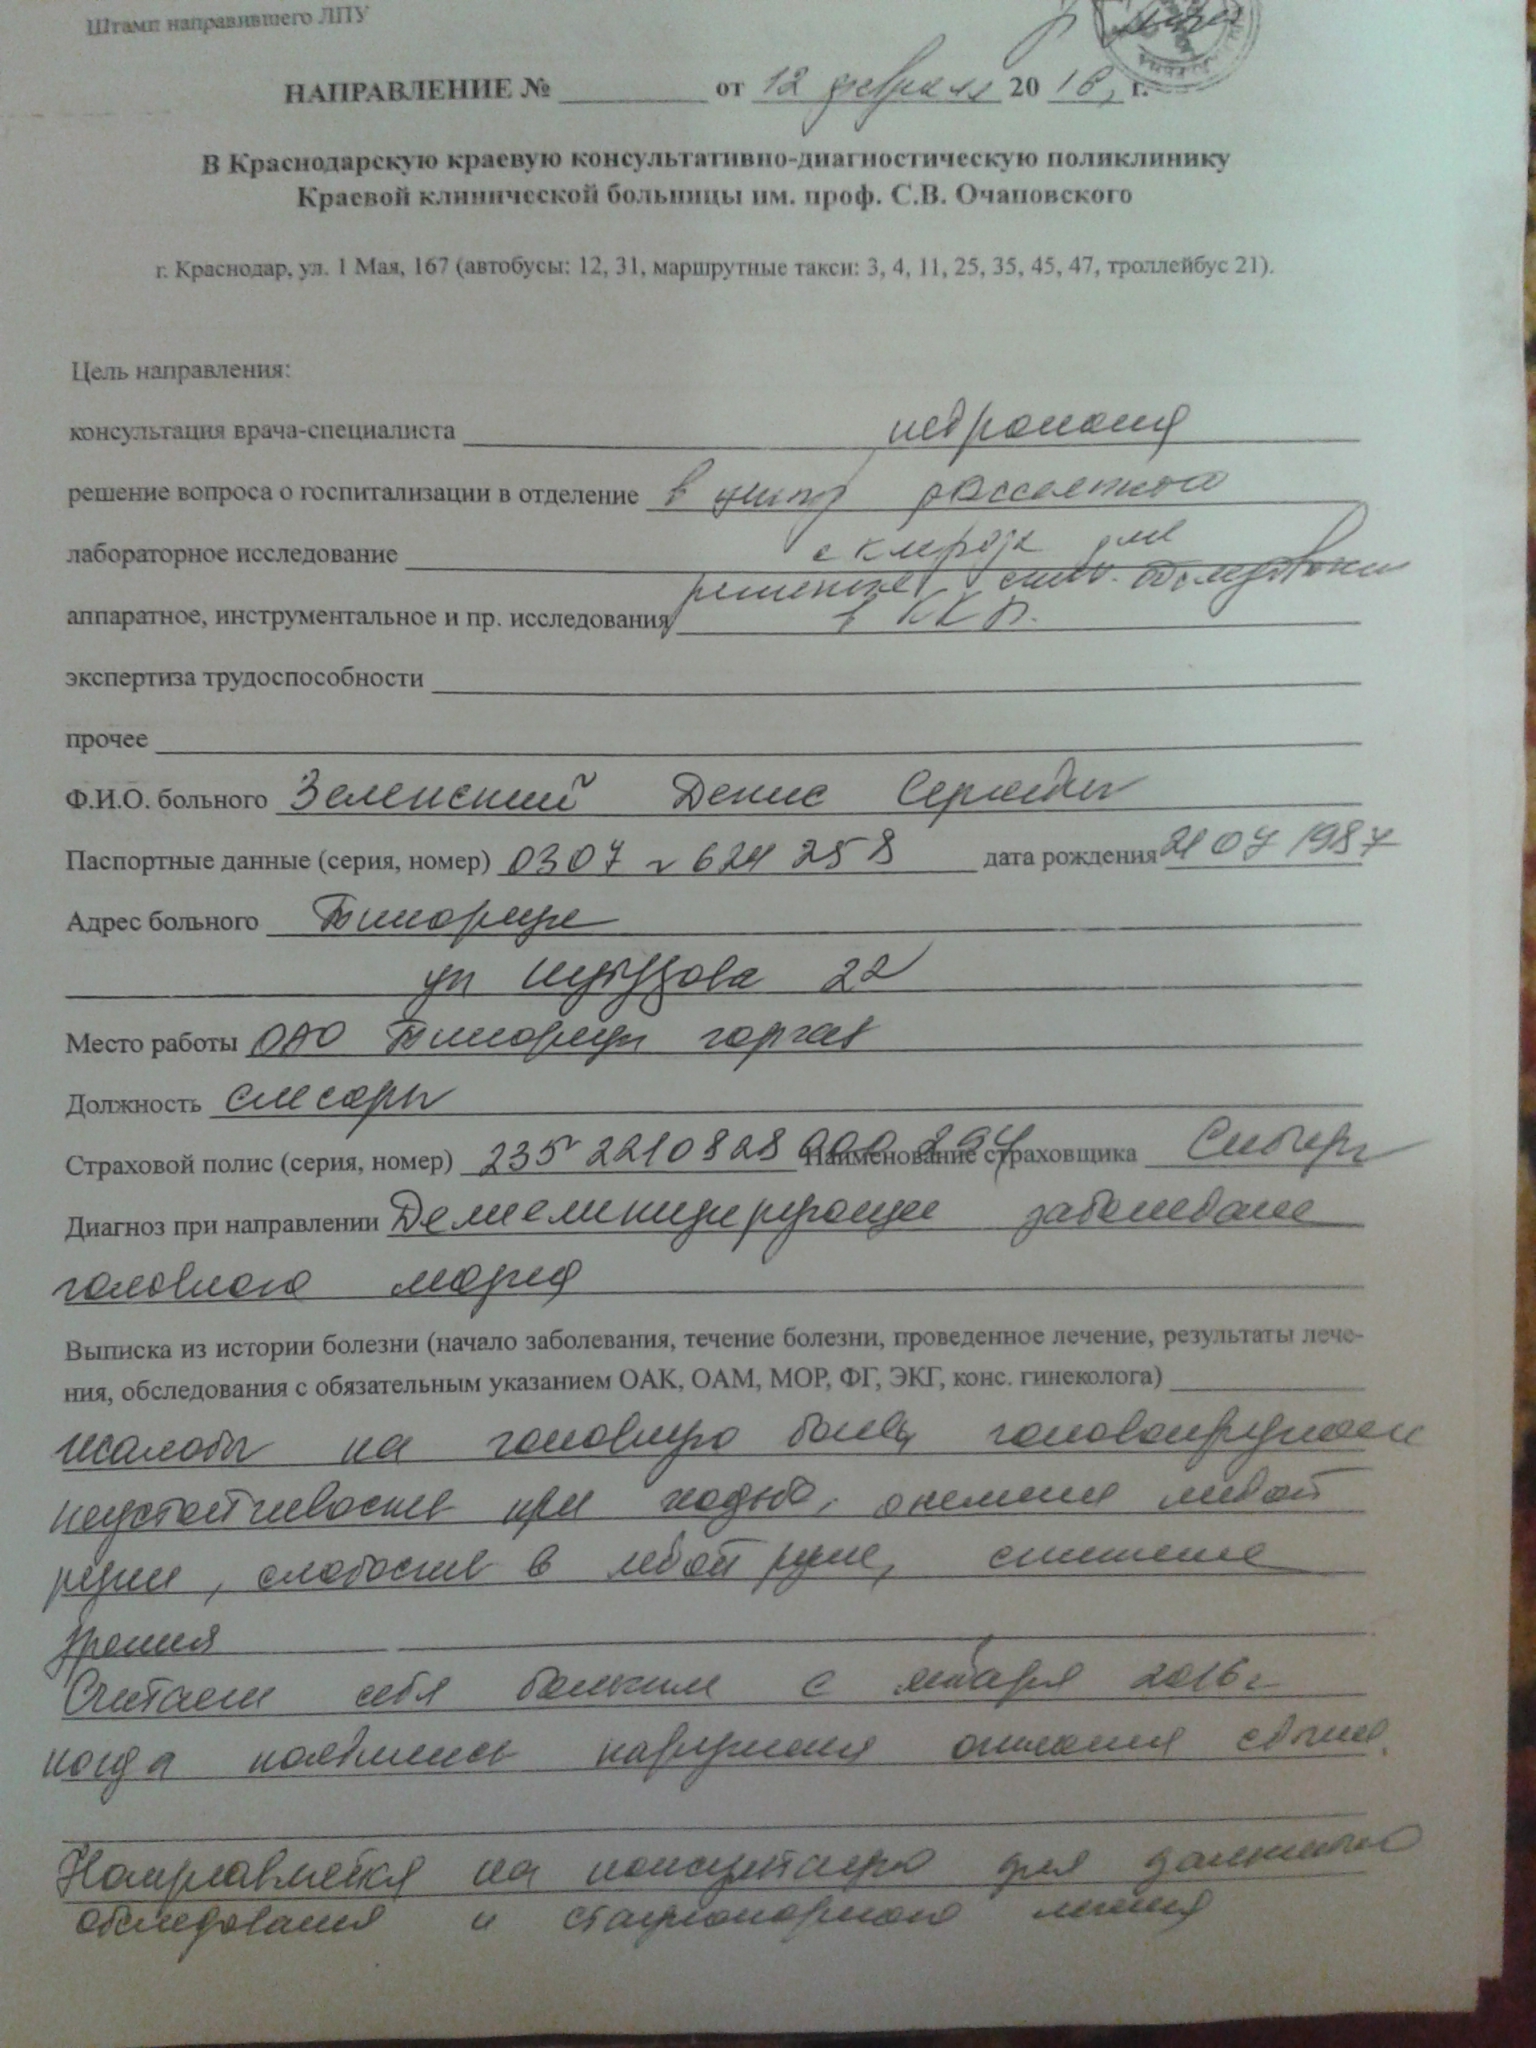 Штамп направившего ЛПУ
НАПРАВЛЕНИЕ № от 12 февраля 20 16, г.
В Краснодарскую краевую консультативно-диагностическую поликлинику
Краевой клинической больницы им. проф. С.В. Очаповского
г. Краснодар, ул. 1 Мая, 167 (автобусы: 12, 31, маршрутные такси: 3, 4, 11, 25, 35, 45, 47, троллейбус 21).
Цель направления:
консультация врача-специалиста невролога
решение вопроса о госпитализации в отделение в центр рассеянного
лабораторное исследование склероза для
решения стац. обследования
аппаратное, инструментальное и пр. исследования в ККБ.
экспертиза трудоспособности
прочее
Ф.И.О. больного Зеленский Денис Сергеевич
Паспортные данные (серия, номер) 0307 N 624 258 дата рождения 21 07 1987
Адрес больного Тихорецк
ул 22
Место работы ОАО Тихорецк горгаз
Должность слесарь
Страховой полис (серия, номер) 235 2210828 000 294 Наименование страховщика Сибирь
Диагноз при направлении Демиелинизирующее заболевание
головного мозга
Выписка из истории болезни (начало заболевания, течение болезни, проведенное лечение, результаты лече-
ния, обследования с обязательным указанием ОАК, ОАМ, МОР, ФГ, ЭКГ, конс. гинеколога)
жалобы на головную боль, головокружение
неустойчивость при ходьбе, онемение левой
руки, слабость в левой руке, снижение
зрения
Считает себя больным с января 2016г
когда появились нарушения
Направляется на консультацию для дальнейшего
обследования и стационарного лечения